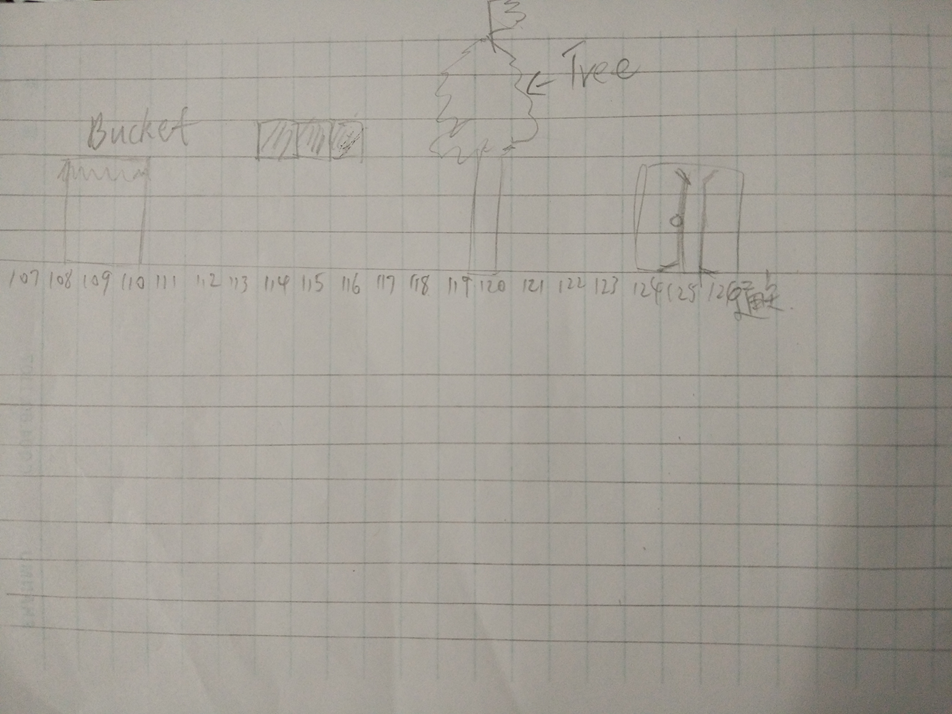 Tree
Bucket
107 108 109 110 111 112 113 114 115 116 117 118 119 120 121 122 123 124 125 126